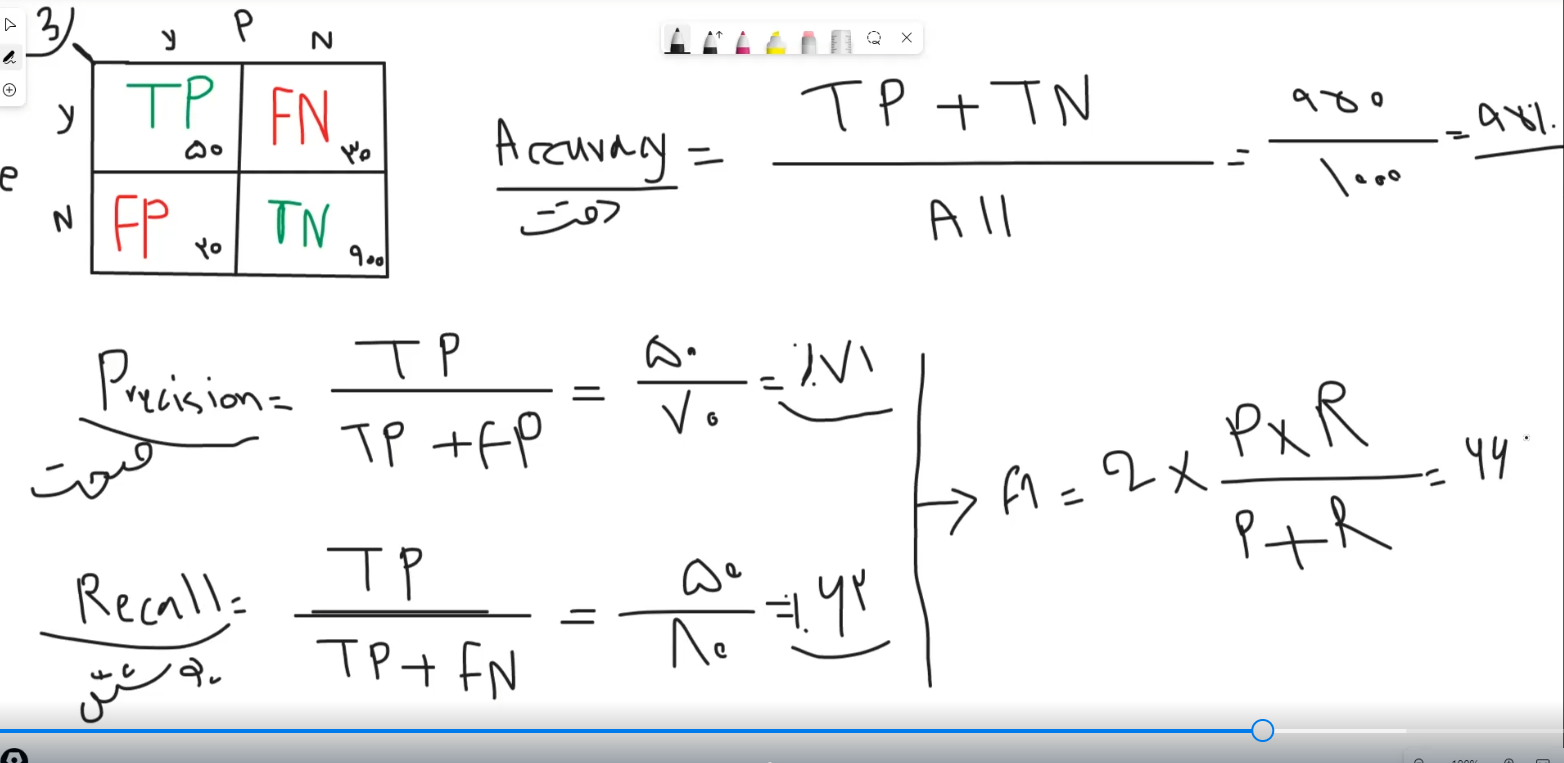 3)
P
y N
y TP ۵۰ FN ۳۰
e
N FP ۲۰ TN ۹۰۰
Accuracy = TP + TN / All = ۹۵۰ / ۱۰۰۰ = ۹۵٪
دقت
Precision = TP / TP + FP = ۵۰ / ۷۰ = ٪۷۱
صحت
Recall = TP / TP + FN = ۵۰ / ۸۰ = ٪۶۲
پوشش
→ F1 = 2 × P × R / P + R = ۶۶